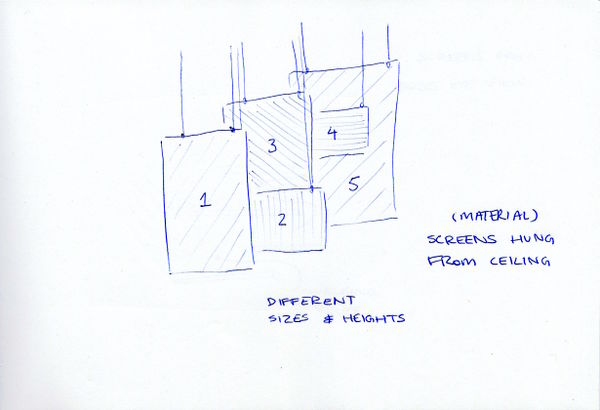 4
3
1
5
2
(MATERIAL)
SCREENS HUNG
FROM CEILING
DIFFERENT
SIZES & HEIGHTS